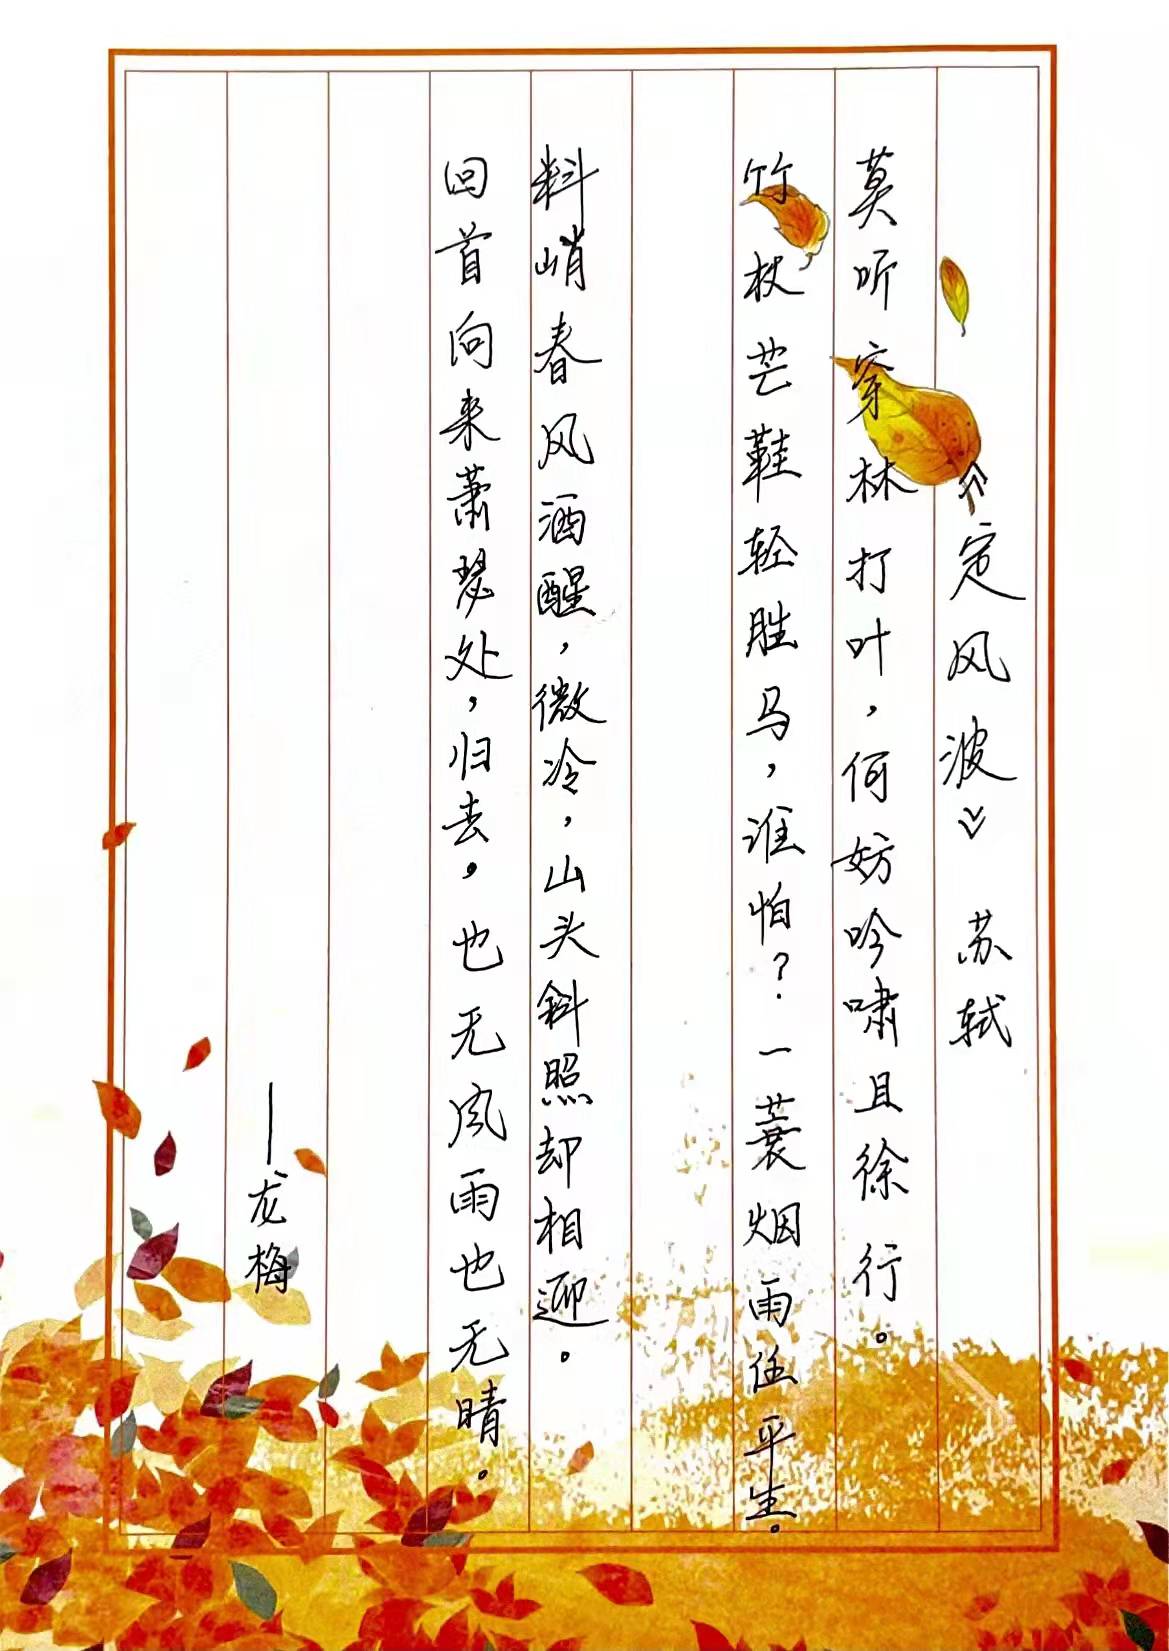 《定风波》 苏轼
莫听穿林打叶，何妨吟啸且徐行。
竹杖芒鞋轻胜马，谁怕？一蓑烟雨任平生。
料峭春风酒醒，微冷，山头斜照却相迎。
回首向来萧瑟处，归去，也无风雨也无晴。
—龙梅